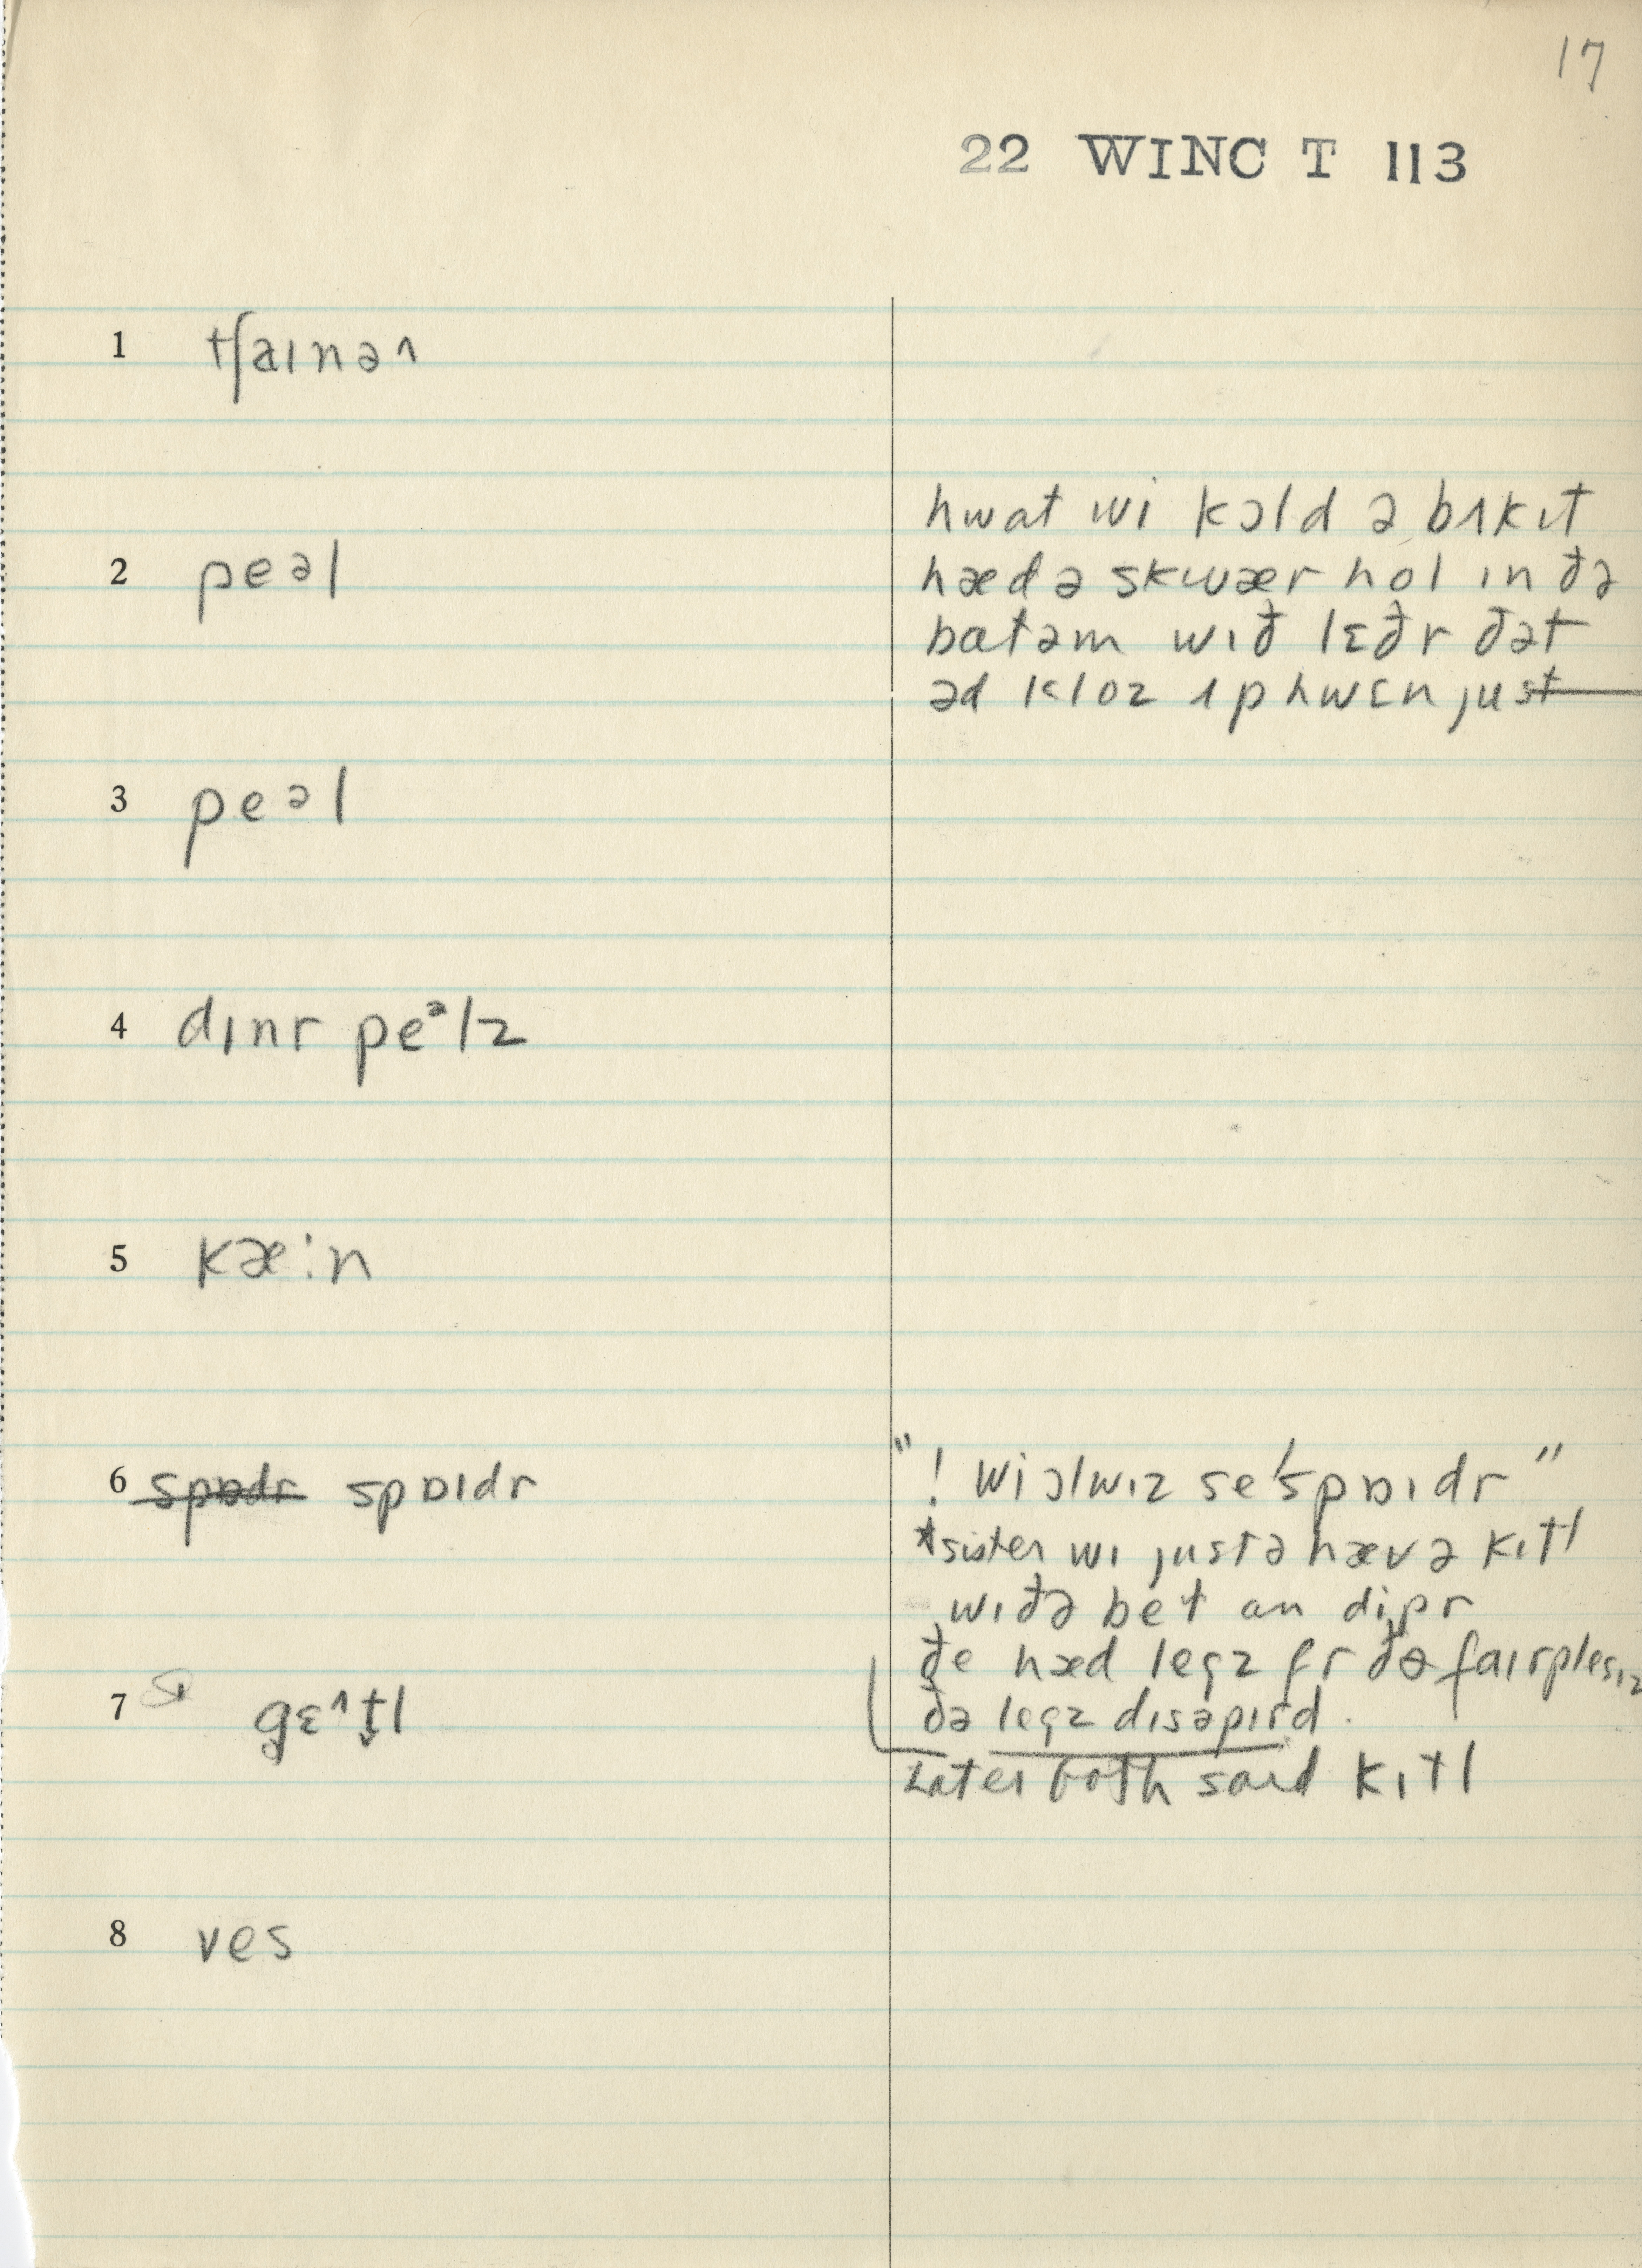 17
22 WINC T 113
1 tʃaɪnə˄
hwat wi kɔld ə bʌkɪt
2 peəl
hæd ə skwær hol ɪn ðə
batəm wɪð lɛðr ðət
əd kloz ʌp hwɛn just
3 peəl
4 dɪnr peᵊlz
5 kæ:n
6 spɒdr spɒɪdr
"! wi ɔlwɪz se 'spɒɪdr"
*sister wɪ justə hæv ə kɪtl
wɪðə bet an dipr
ðe hæd legz fr ðə faɪrplesɪz
7 gɛ^t̬l
ðə legz dɪsəpɪrd.
Later both said kɪtl
8 ves